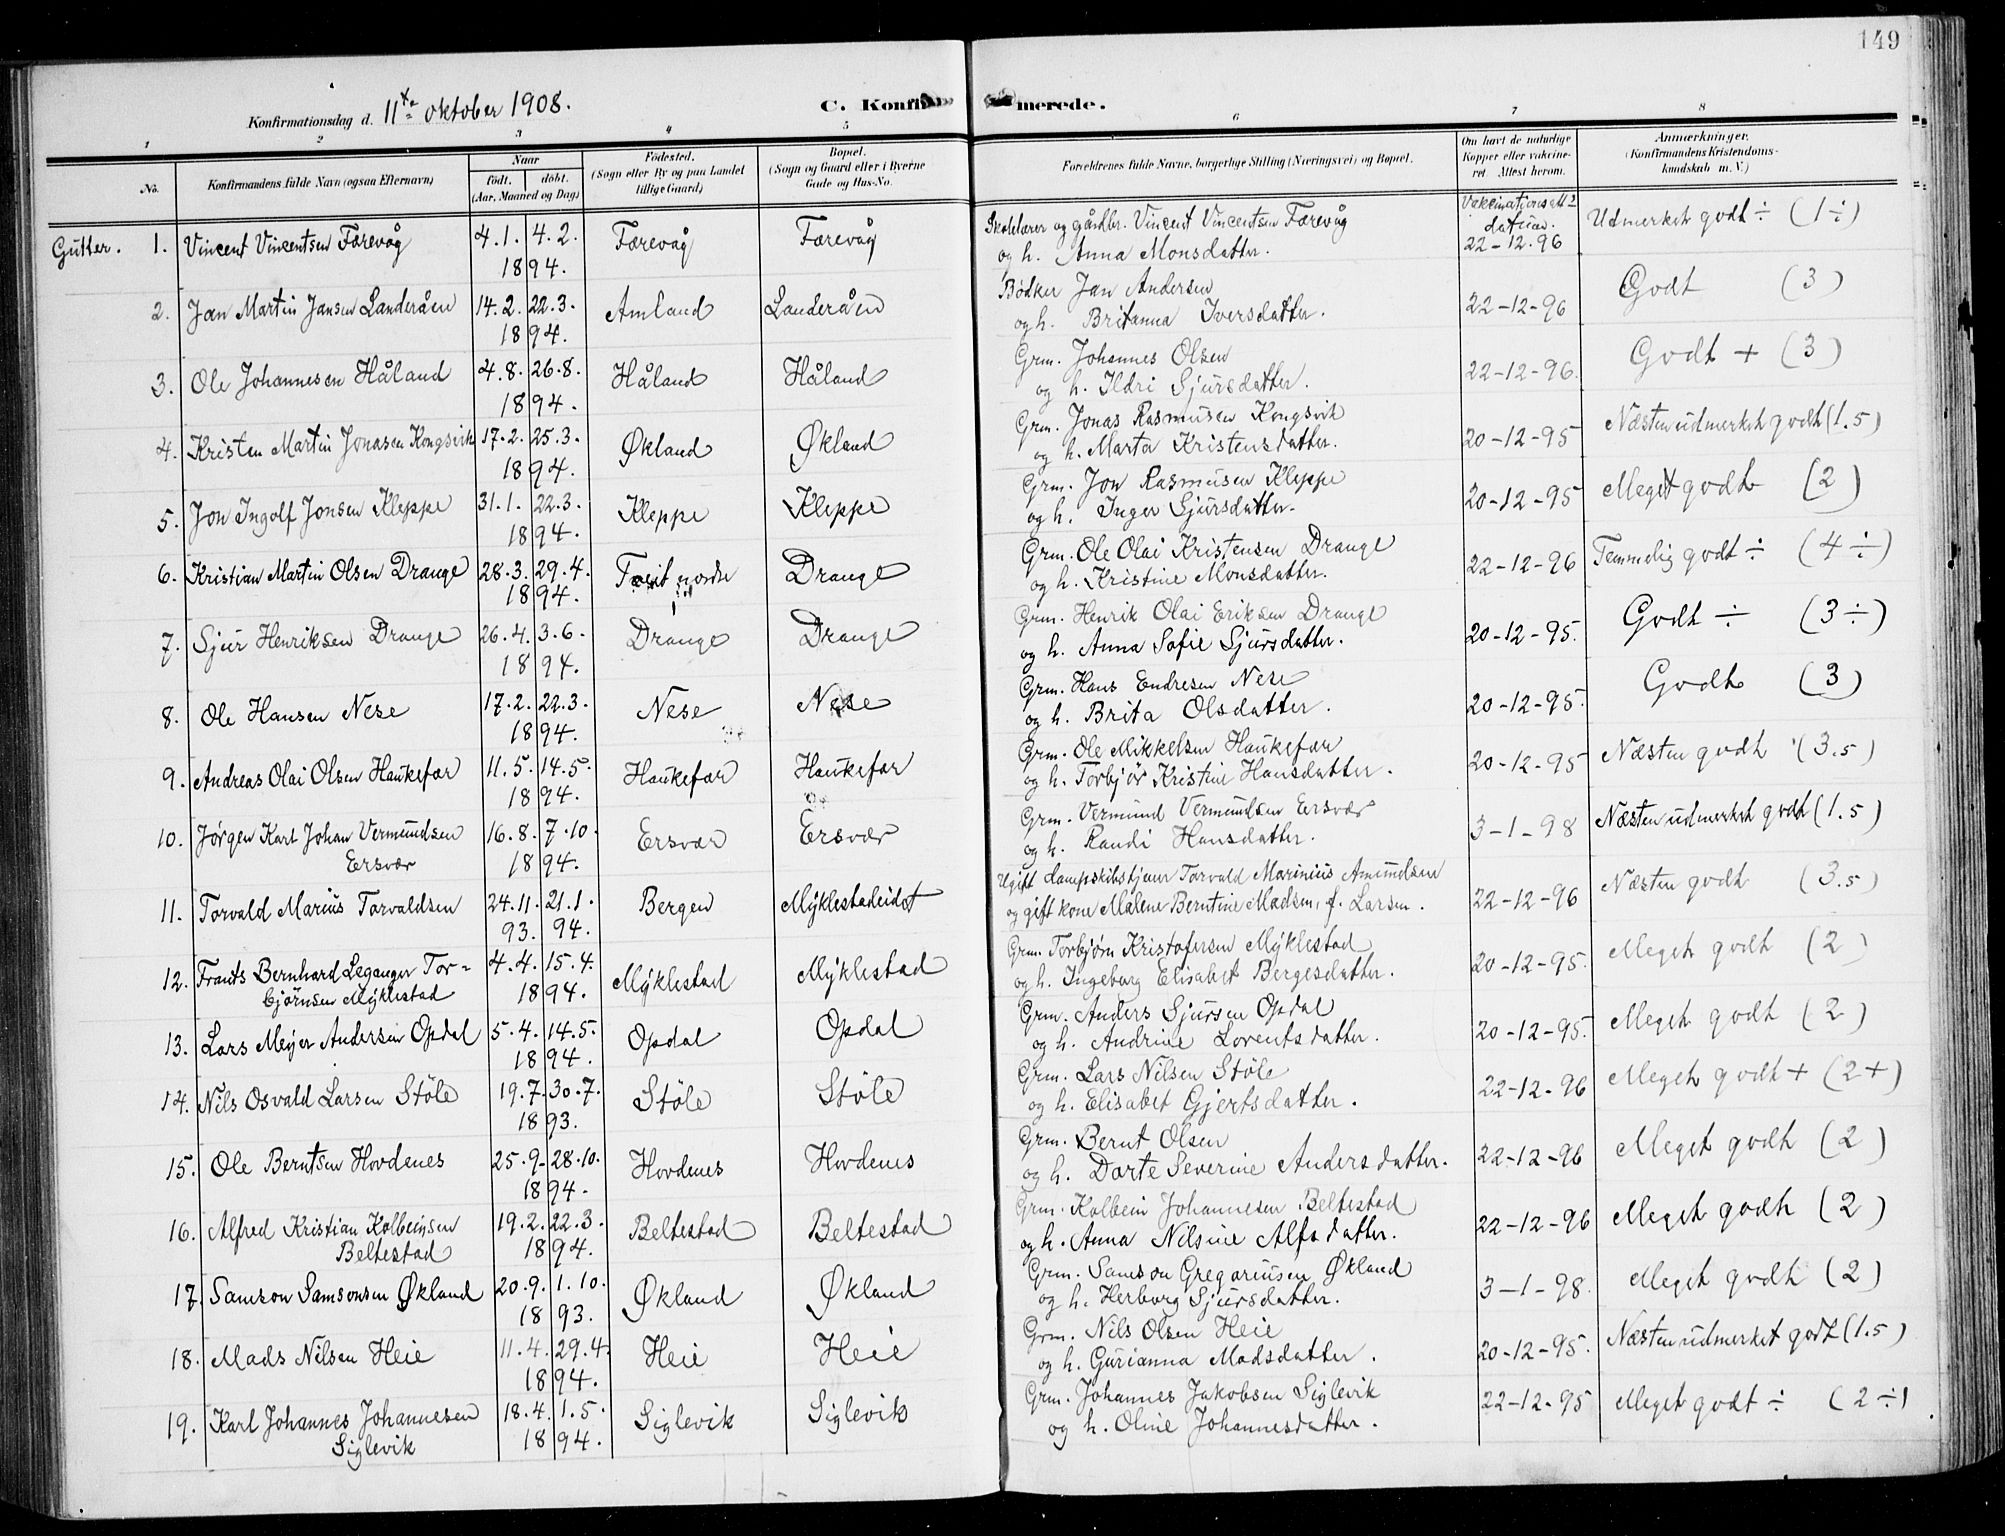 149
Konfirmationsdag d. 11te oktober 1908.
C. Konfirmerede.
1 2 3 4 5 6 7 8
No. Konfirmandens fulde Navn (ogsaa Efternavn) Naar født. døbt. (Aar, Maaned og Dag) Fødested. (Sogn eller By og paa Landet tillige Gaard) Bopæl. (Sogn og Gaard eller i Byerne Gade og Hus-No. Forældrenes fulde Navne, borgerlige Stilling (Næringsvei) og Bopæl. Om havt de naturlige Kopper eller vakcineret. Attest herom. Anmærkninger. (Konfirmandens Kristendomskundskab m. V.)
Gutter. 1. Vincent Vincentsen Færevåg 4.1. 4.2. 1894. Færevåg Færevåg Skolelærer og gårdbr. Vincent Vincentsen Færevåg
og h. Anna Monsdatter. Vakcinationsatt. datum. 22-12-96 Udmerket godt ÷ (1÷)
2. Jan Martin Jansen Landeråen 14.2. 22.3. 1894. Amland Landeråen Bödker Jan Andersen
og h. Britanna Iversdatter. 22-12-96 Godt (3)
3. Ole Johannesen Håland 4.8. 26.8. 1894. Håland Håland Grm. Johannes Olsen
og h. Ildri Sjursdatter. 22-12-96. Godt + (3)
4. Kristen Martin Jonasen Kongsvik 17.2. 25.3. 1894. Økland Økland Grm. Jonas Rasmusen Kongsvik
og h. Marta Kristensdatter. 20-12-95 Næsten udmerket godt (1.5)
5. Jon Ingolf Jonsen Kleppe 31.1. 22.3. 1894. Kleppe Kleppe Grm. Jon Rasmusen Kleppe
og h. Inger Sjursdatter. 20-12-95 Meget godt (2)
6. Kristian Martin Olsen Drange 28.3. 29.4. 1894. nordre Drange Grm. Ole Olai Kristensen Drange
og h. Kristine Monsdatter. 22-12-96 Temmelig godt ÷ (4÷)
7. Sjur Henriksen Drange 26.4. 3.6. 1894. Drange Drange Grm. Henrik Olai Eriksen Drange
og h. Anna Sofie Sjursdatter. 20-12-95. Godt ÷ (3÷)
8. Ole Hansen Nese 17.2. 22.3. 1894. Nese Nese Grm. Hans Endresen Nese
og h. Brita Olsdatter. 20-12-95. Godt (3)
9. Andreas Olai Olsen Haukefær 11.5. 14.5. 1894. Haukefær Haukefær Grm. Ole Mikkelsen Haukefær
og h. Torbjør Kristine Hansdatter. 20-12-95 Næsten godt (3.5)
10. Jørgen Karl Johan Vermundsen
Ersvær 16.8. 7.10. 1894. Ersvær Ersvær Grm. Vermund Vermundsen Ersvær
og h. Randi Hansdatter. 3-1-98 Næsten udmerket godt (1.5)
11. Torvald Marius Torvaldsen 24.11. 93. 21.1. 94. Bergen Myklestadeidet Ugift dampskibstjener Torvald Marinius Amundsen
og gift kone Malene Berntine Madsen, f. Larsen. 22-12-96 Næsten godt (3.5)
12. Frants Bernhard Leganger Tor-
bjørnsen Myklestad 4.4. 15.4. 1894. Myklestad Myklestad Grm. Torbjørn Kristofersen Myklestad
og h. Ingeborg Elisabet Bergesdatter. 20-12-95. Meget godt (2)
13. Lars Meyer Andersen Opdal 5.4. 14.5. 1894. Opdal Opdal Grm. Anders Sjursen Opdal
og h. Andrine Lorentsdatter. 20-12-95. Meget godt (2)
14. Nils Osvald Larsen Støle 19.7. 30.7. 1893. Støle Støle Grm. Lars Nilsen Støle
og h. Elisabet Gjertsdatter. 22-12-96 Meget godt + (2+)
15. Ole Berntsen Hovdenes 25.9. 28.10. 1894. Hovdenes Hovdenes Grm. Bernt Olsen
og h. Dorte Severine Andersdatter. 22-12-96 Meget godt (2)
16. Alfred Kristian Kolbeinsen
Beltestad 19.2. 22.3. 1894. Beltestad Beltestad Grm. Kolbein Johannesen Beltestad
og h. Anna Nilsine Alfsdatter. 22-12-96 Meget godt (2)
17. Samson Samsonsen Økland 20.9. 1.10. 1893. Økland Økland Grm. Samson Gregoriusen Økland
og h. Herborg Sjursdatter. 3-1-98. Meget godt (2)
18. Mads Nilsen Heie 11.4. 29.4. 1894. Heie Heie Grm. Nils Olsen Heie
og h. Gurianna Madsdatter. 20-12-95. Næsten udmerket godt (1.5)
19. Karl Johannes Johannesen
Siglevik 18.4. 1.5. 1894. Siglevik Siglevik Grm. Johannes Jakobsen Siglevik
og h. Oline Johannesdatter. 22-12-95 Meget godt ÷ (2÷)